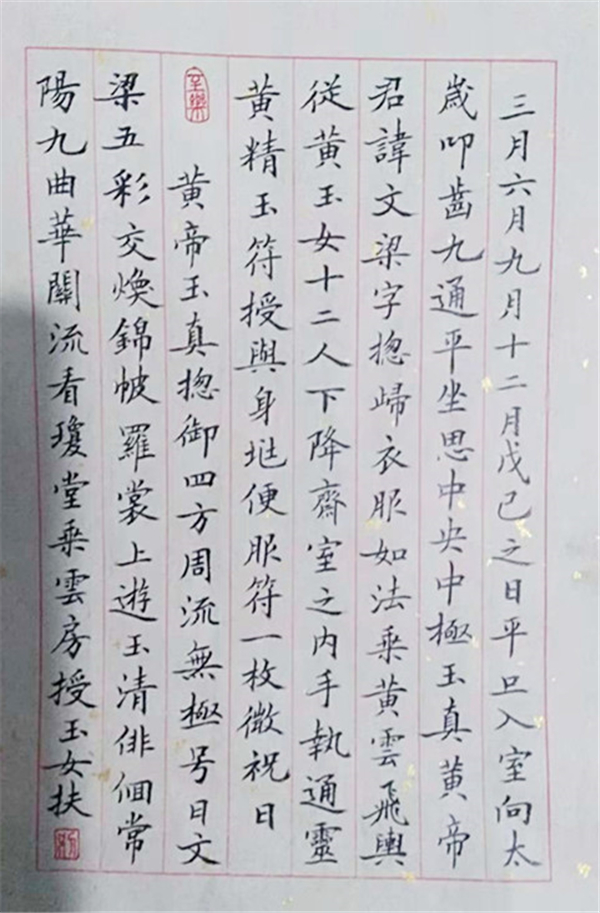 三月六月九月十二月戊己之日平旦入室向太
歲叩齒九通平坐思中央中極玉真黄帝
君諱文梁字揔歸衣服如法乗黄雲飛輿
從黄玉女十二人下降齋室之内手執通靈
黄精玉符授與身𡉏便服符一枚微祝曰
至樂
黄帝玉真揔御四方周流無極号曰文
梁五彩交煥錦帔羅裳上遊玉清俳佪常
陽九曲華關流看瓊堂乗雲房授玉女扶